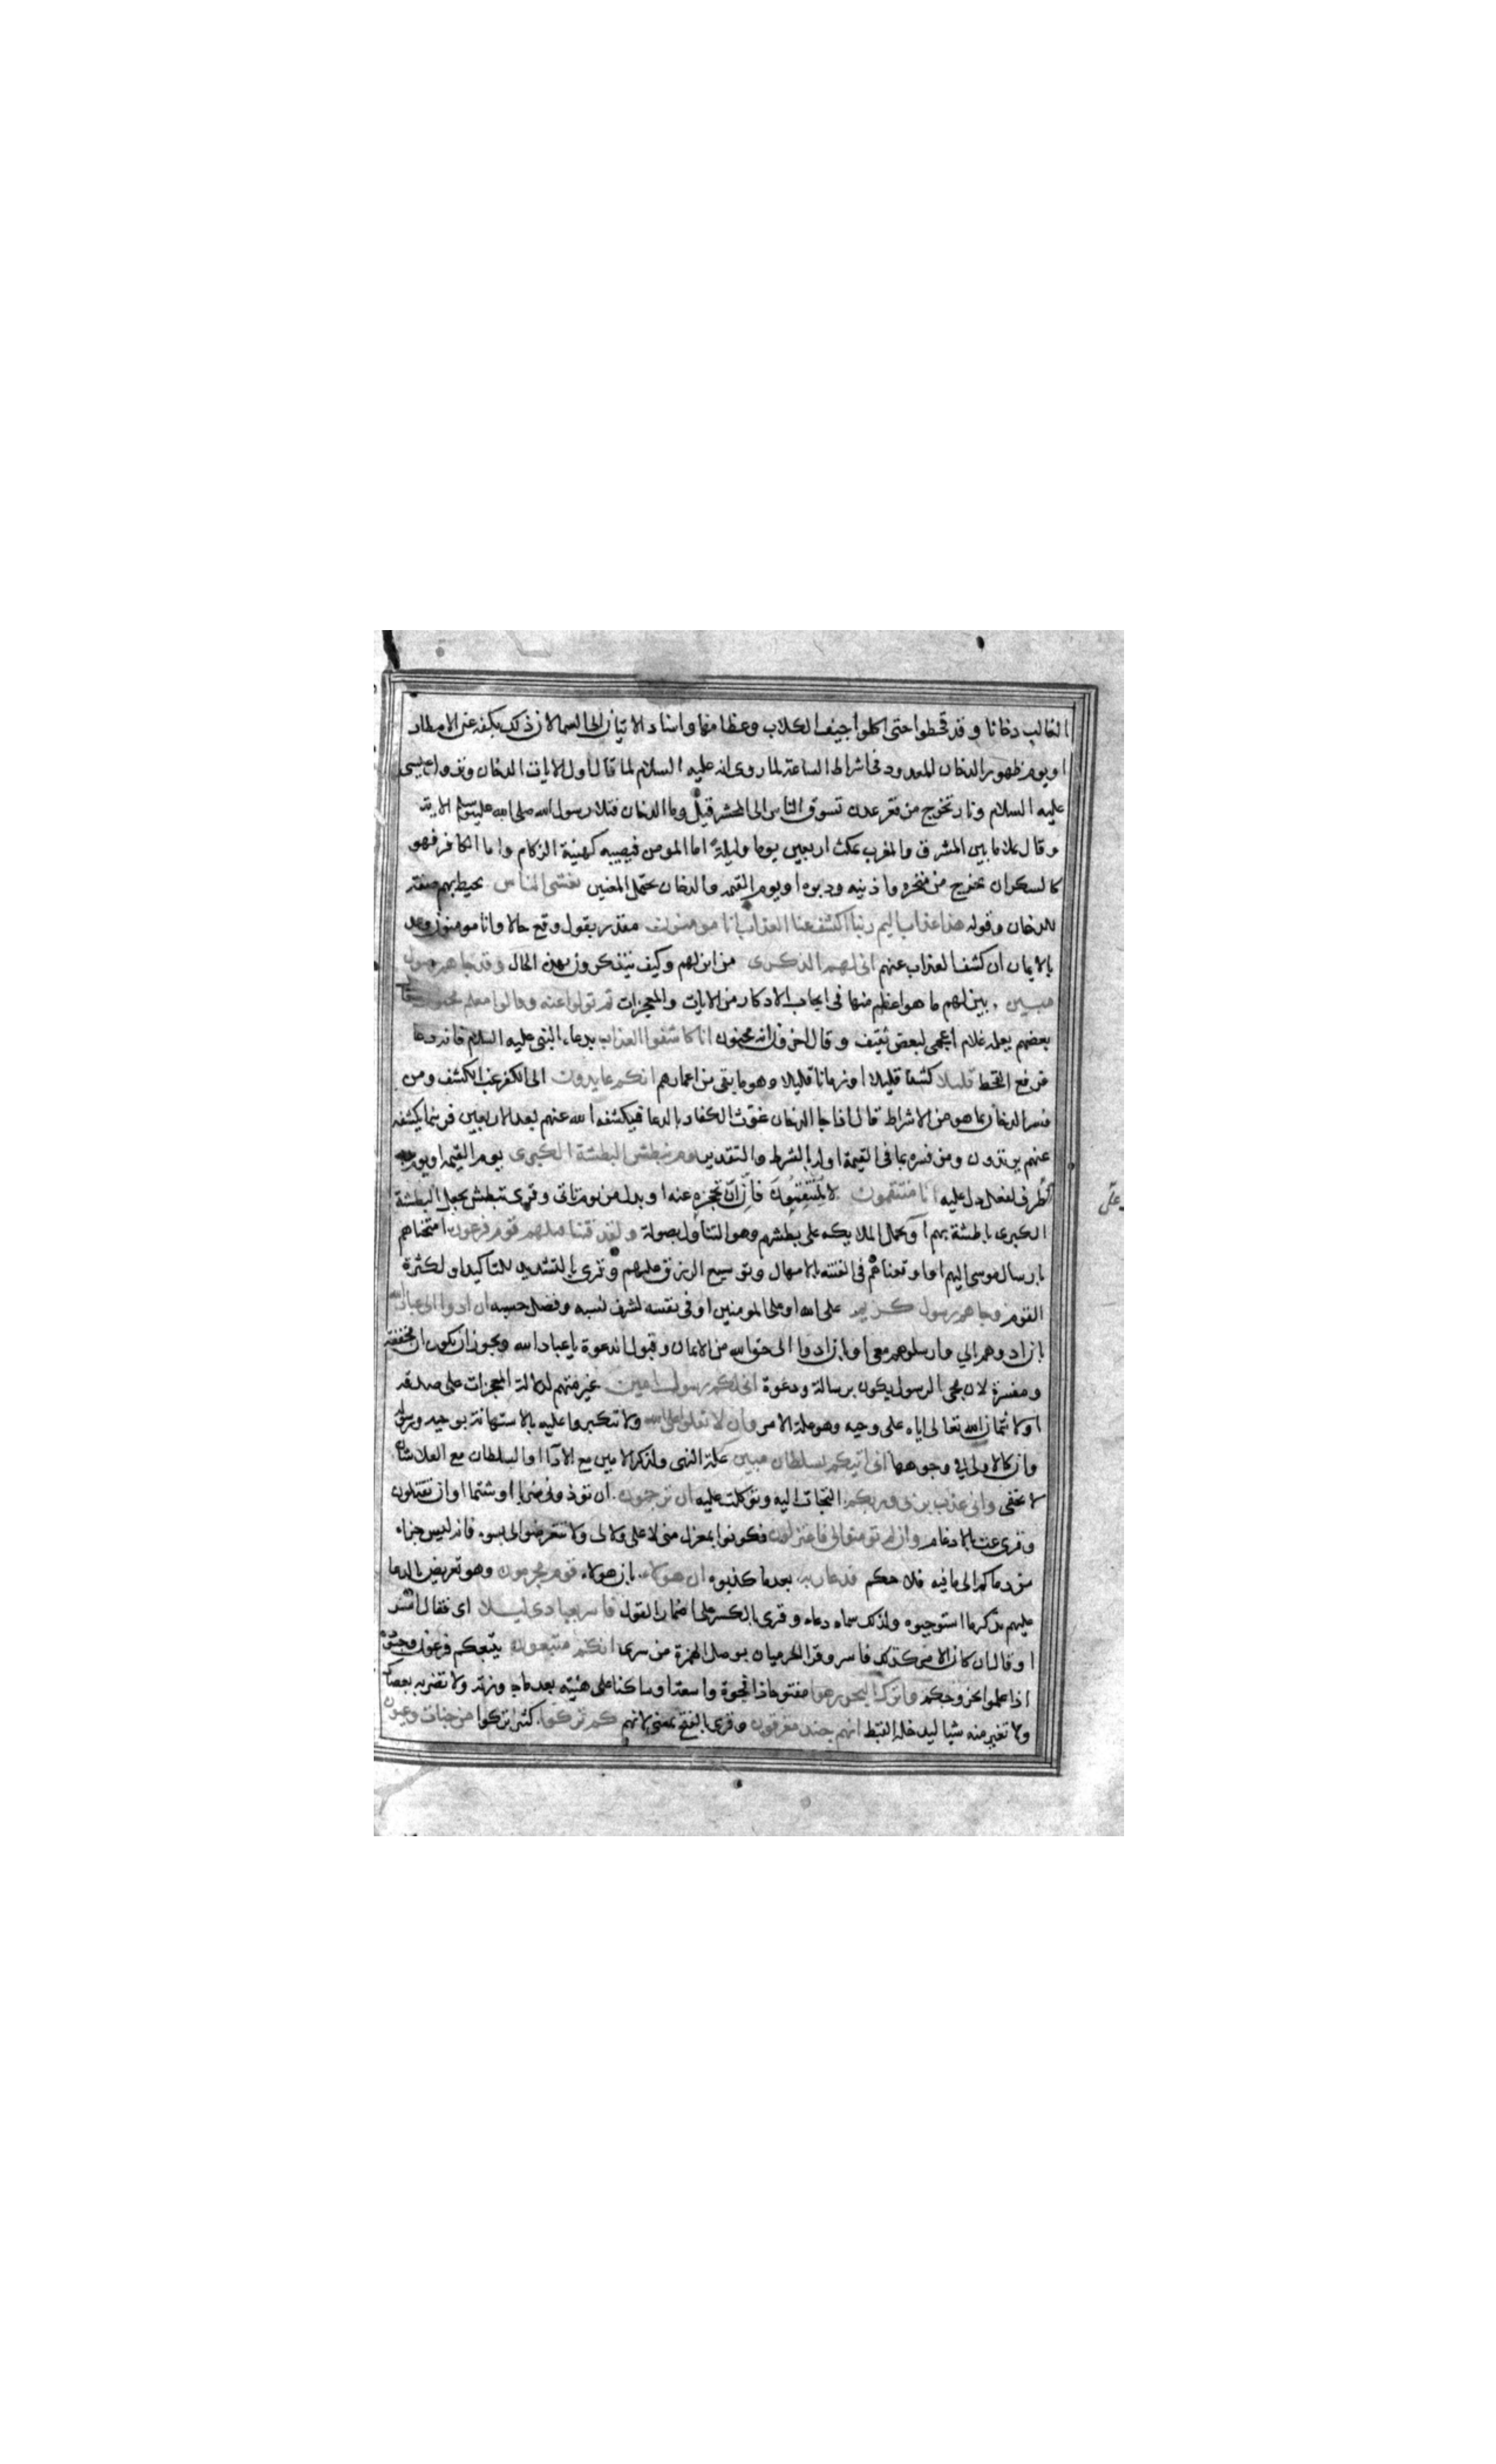 الغالب دخانا وقد قحطوا حتى اكلوا جيف الكلاب وعظامها واسناد الاتيان الى السما لان ذلك يكفه عن الامطار
او يوم ظهور الدخان المعدود في اشراط الساعة لما روى انه عليه السلام لما قال اول الايات الدخان ونزول عيسى
عليه السلام ونار تخرج من قعر عدن تسوق الناس الى المحشر قيل وما الدخان فتلا رسول الله صلى الله عليه وسلم الاية
وقال يملا ما بين المشرق والمغرب يمكث اربعين يوما وليلة اما المومن فيصيبه كهيئة الزكام واما الكافر فهو
كالسكران يخرج من منخره واذنيه ودبره او يوم القيمة والدخان يحتمل المعنيين يغشى الناس يحيط بهم صفة
للدخان وقوله هذا عذاب اليم ربنا اكشف عنا العذاب انا مومنون مقدر بقول وقع حالا وانا مومنون وعد
بالايمان ان كشف العذاب عنهم انى لهم الذكرى من اين لهم وكيف يتذكرون بهذه الحال وقد جاهم رسول
مبين بين لهم ما هو اعظم منها في ايجاب الادكار من الايات والمعجزات ثم تولوا عنه وقالوا معلم مجنون قال
بعضهم يعلمه غلام اعجمى لبعض ثقيف وقال اخرون انه مجنون انا كاشفوا العذاب بدعاء النبي عليه السلام فانه دعا
فرفع القحط قليلا كشفا قليلا او زمانا قليلا وهو ما بقى من اعمارهم انكم عايدون الى الكفر غب الكشف ومن
فسر الدخان بما هو من الاشراط قال اذا جا الدخان غوث الكفار بالدعا فيكشفه الله عنهم بعد الاربعين فريثما يكشفه
عنهم يرتدون ومن فسره بما في القيمة اوله بالشرط والتقدير يوم نبطش البطشة الكبرى يوم القيمة او يوم بدر
ظرف لفعل دل عليه انا منتقمون لا لمنتقمون فان ان تحجزه عنه او بدل من يوم تاتى وقرى نبطش بجعل البطشة
الكبرى باطشة بهم او بحمل الملايكه على بطشهم وهو التناول بصولة ولقد فتنا قبلهم قوم فرعون امتحناهم
بارسال موسى اليهم او اوقعناهم في الفتنة بالامهال وتوسيع الرزق عليهم وقرى بالتشديد للتاكيد او لكثرة
القوم وجاهم رسول كريم على الله او على المومنين او في نفسه لشرف نسبه وفضل حسبه ان ادوا الى عباد الله
بان ادوهم الي وارسلوهم معى او بان ادوا الى حق الله من الايمان وقبول الدعوة يا عباد الله ويجوز ان تكون ان مخففة
ومفسرة لان مجى الرسول يكون برسالة ودعوة انى لكم رسول امين غير متهم لدلالة المعجزات على صدقه
او لائتمان الله تعالى اياه على وحيه وهو علة الامر وان لا تعلوا على الله ولا تتكبروا عليه بالاستهانة بوحيه ورسوله
وان كالاولى في وجوهها انى اتيكم بسلطان مبين علة النهى ولذكر الامين مع الادآ والسلطان مع العلا شان
لا يخفى وانى عذت بربى وربكم التجات اليه وتوكلت عليه ان ترجمون ان توذوني ضربا او شتما او ان تقتلون
وقرى عت بالادغام وان لم تومنوا لى فاعتزلون فكونوا بمعزل منى لا على ولا لى ولا تتعرضوا لى بسوء فانه ليس جزاء
من دعاكم الى ما فيه فلاحكم فدعا ربه بعد ما كذبوه ان هولاء بان هولاء قوم مجرمون وهو تعريض بالدعا
عليهم بذكر ما استوجبوه ولذلك سماه دعاء وقرى بالكسر على اضمار القول فاسر بعبادى ليلا اى فقال اسر
او قال ان كان الامر كذلك فاسر وقرا الحرميان بوصل الهمزة من سرى انكم متبعون يتبعكم فرعون وجنوده
اذا علموا بخروجكم واترك البحر رهوا مفتوحا ذا فجوة واسعة او ساكنا على هيئته بعد ما جاوزته ولا تضربه بعصاك
ولا تغير منه شيا ليدخله القبط انهم جند مغرقون وقرى بالفتح بمعنى لانهم كم تركوا كثيرا تركوا من جنات وعيون